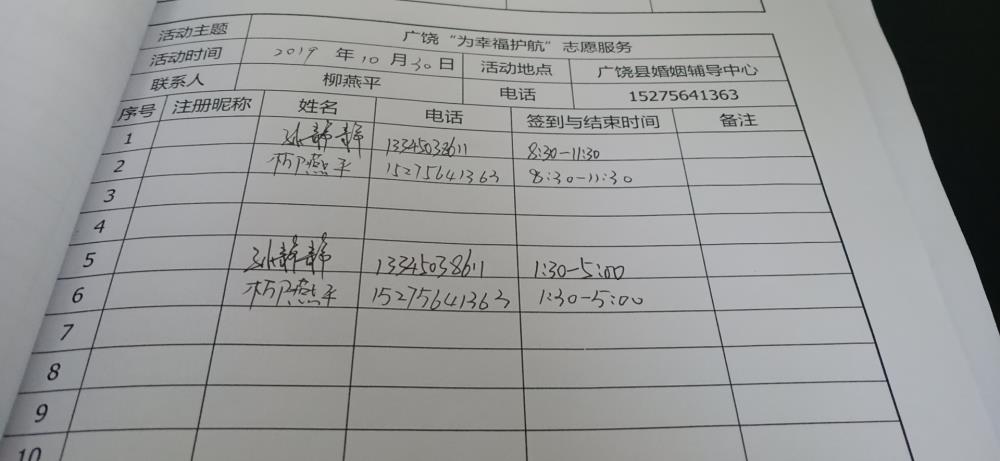 活动主题 广饶“为幸福护航”志愿服务
活动时间 2019 年 10 月 30 日 活动地点 广饶县婚姻辅导中心
联系人 柳燕平 电话 15275641363
序号 注册昵称 姓名 电话 签到与结束时间 备注
1 孙静静 13345038611 8:30-11:30
2 柳燕平 15275641363 8:30-11:30
3
4
5 孙静静 13345038611 1:30-5:00
6 柳燕平 15275641363 1:30-5:00
7
8
9
10